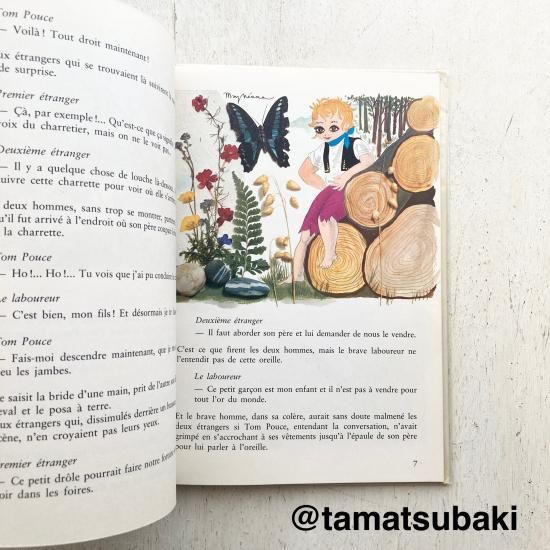 Tom Pouce
— Voilà ! Tout droit maintenant !
ux étrangers qui se trouvaient là
de surprise.
Premier étranger
— Çà, par exemple !... Qu'est-ce que ça
voix du charretier, mais on ne le voit pas..
Deuxième étranger
— Il y a quelque chose de louche là-dessous
uivre cette charrette pour voir où elle
deux hommes, sans trop se montrer,
qu'il fut arrivé à l'endroit où son père
la charrette.
Tom Pouce
— Ho !... Ho !... Tu vois que j'ai pu
Le laboureur
— C'est bien, mon fils ! Et désormais je
Tom Pouce
— Fais-moi descendre maintenant, que je
eu les jambes.
e saisit la bride d'une main, prit de l'autre
eval et le posa à terre.
ux étrangers qui, dissimulés derrière un
cène, n'en croyaient pas leurs yeux.
Premier étranger
— Ce petit drôle pourrait faire notre fortune
oir dans les foires.
Deuxième étranger
— Il faut aborder son père et lui demander de nous le vendre.
C'est ce que firent les deux hommes, mais le brave laboureur ne
l'entendit pas de cette oreille.
Le laboureur
— Ce petit garçon est mon enfant et il n'est pas à vendre pour
tout l'or du monde.
Et le brave homme, dans sa colère, aurait sans doute malmené les
deux étrangers si Tom Pouce, entendant la conversation, n'avait
grimpé en s'accrochant à ses vêtements jusqu'à l'épaule de son père
pour lui parler à l'oreille.
7
@tamatsubaki